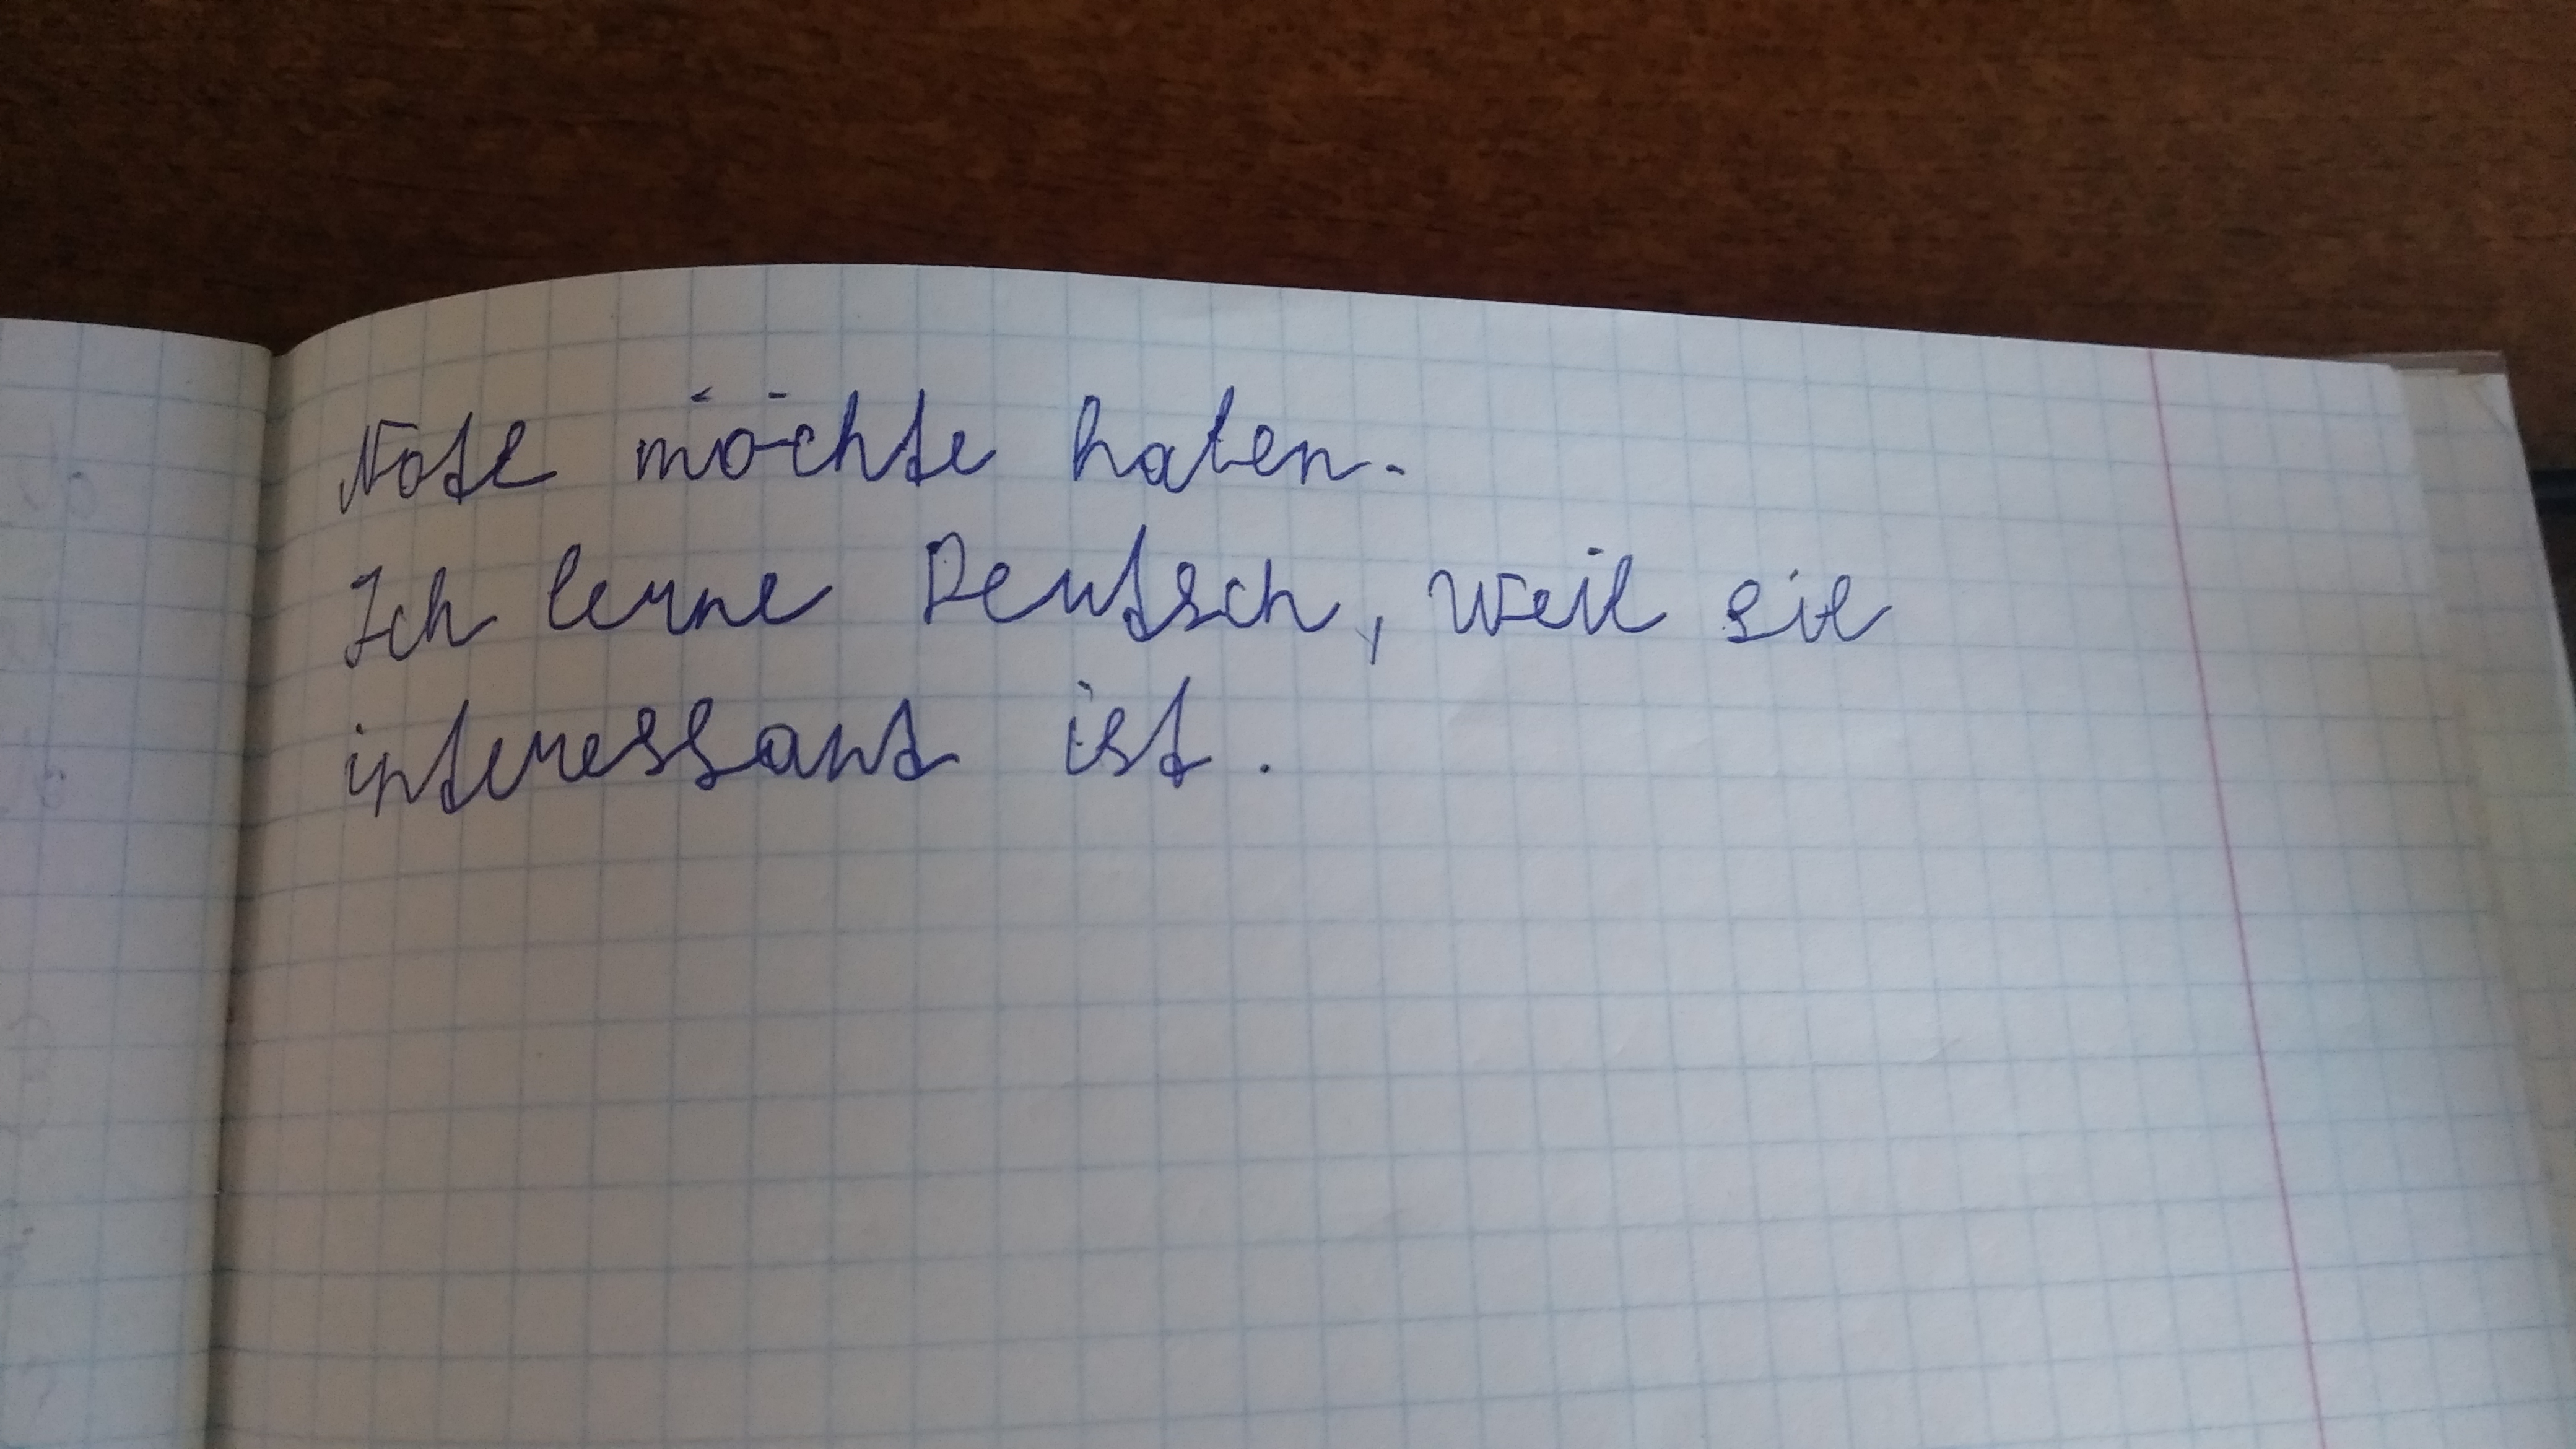 Note möchte haben.
Ich lerne Deutsch, weil sie
interessant ist.